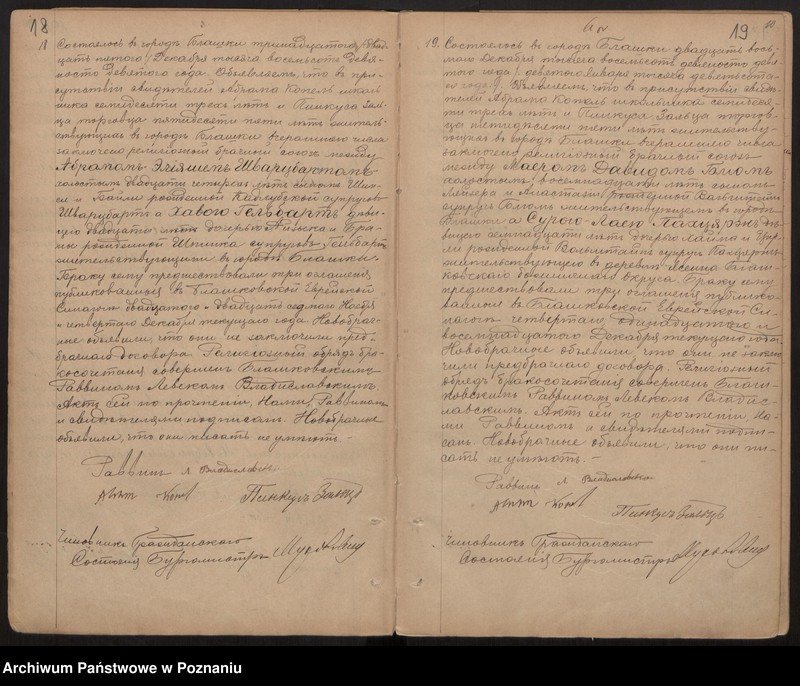 18
18 Состоялось въ городѣ Блашки тринадцатаго /двад-
цать пятого/ Декабря тысяча восемьсотъ девя-
носто девятого года. Объявляемъ, что въ при-
сутствіи свидѣтелей Абрама Копель школь-
ника семидесяти трехъ лѣтъ и Пинкуса Заль-
ца торговца пятидесяти пяти лѣтъ житель-
ствующихъ въ городѣ Блашки вчерашняго числа
заключено религіозный брачный союзъ между
Абрамомъ-Эліяшемъ Шварцбартомъ
холостымъ двадцати четырехъ лѣтъ сыномъ
и Байли рожденной супруговъ
Шварцбартъ и Хавою Гельбартъ дѣви-
цею двадцати лѣтъ дочерью Айзека и
рожденной супруговъ Гельбартъ
жительствующими въ городѣ Блашки.
Браку сему предшествовали три оглашенія
публикованныя въ Блашковской Еврейской
Синагогѣ двадцатого и двадцать седьмого Ноября
и четвертаго Декабря текущаго года. Новобрач-
ные объявили, что они не заключили пред-
брачнаго договора. Религіозный обрядъ бра-
косочетанія совершенъ Блашковскимъ
Раввиномъ Левекомъ Владиславскимъ.
Актъ сей по прочтеніи, Нами, Раввиномъ
и свидѣтелями подписанъ. Новобрачные
объявили, что они писать не умѣютъ. —
Раввинъ Л Владиславскій
Пинкусъ Зальцъ
Чиновникъ Гражданскаго
Состоянія Бургомистръ
19
19. Состоялось въ городѣ Блашки двадцать вось-
маго Декабря тысяча восемьсотъ девяносто девя-
того года /девятого Января тысяча девятьсота-
го года/. Объявляемъ, что въ присутствіи свидѣ-
телей Абрама Копель школьника семидеся-
ти трехъ лѣтъ и Пинкуса Зальца торгов-
ца пятидесяти пяти лѣтъ жительствую-
щихъ въ городѣ Блашки вчерашняго числа
заключено религіозный брачный союзъ
между Маеромъ Давидомъ Блюмъ
холостымъ, восемнадцати лѣтъ сыномъ
рожденной
супруговъ Блюмъ жительствующемъ въ городѣ
Блашки и Сурою-Лаею Пахцяржъ дѣ-
вицею семнадцати лѣтъ дочерью Хаима и
рожденной супруговъ
жительствующею въ деревнѣ Блаш-
ковскаго округа. Браку сему
предшествовали три оглашенія публико-
ванныя въ Блашковской Еврейской Си-
нагогѣ четвертаго, одинадцатого и
восемнадцатого Декабря текущаго года.
Новобрачные объявили, что они не заклю-
чили предбрачнаго договора. Религіозный
обрядъ бракосочетанія совершенъ Блаш-
ковскимъ Раввиномъ Левекомъ Владис-
лавскимъ. Актъ сей по прочтеніи, На-
ми Раввиномъ и свидѣтелями подпи-
санъ. Новобрачные объявили, что они пи-
сать не умѣютъ. —
Раввинъ Л Владиславскій
Пинкусъ Зальцъ
Чиновникъ Гражданскаго
Состоянія Бургомистръ
Archiwum Państwowe w Poznaniu